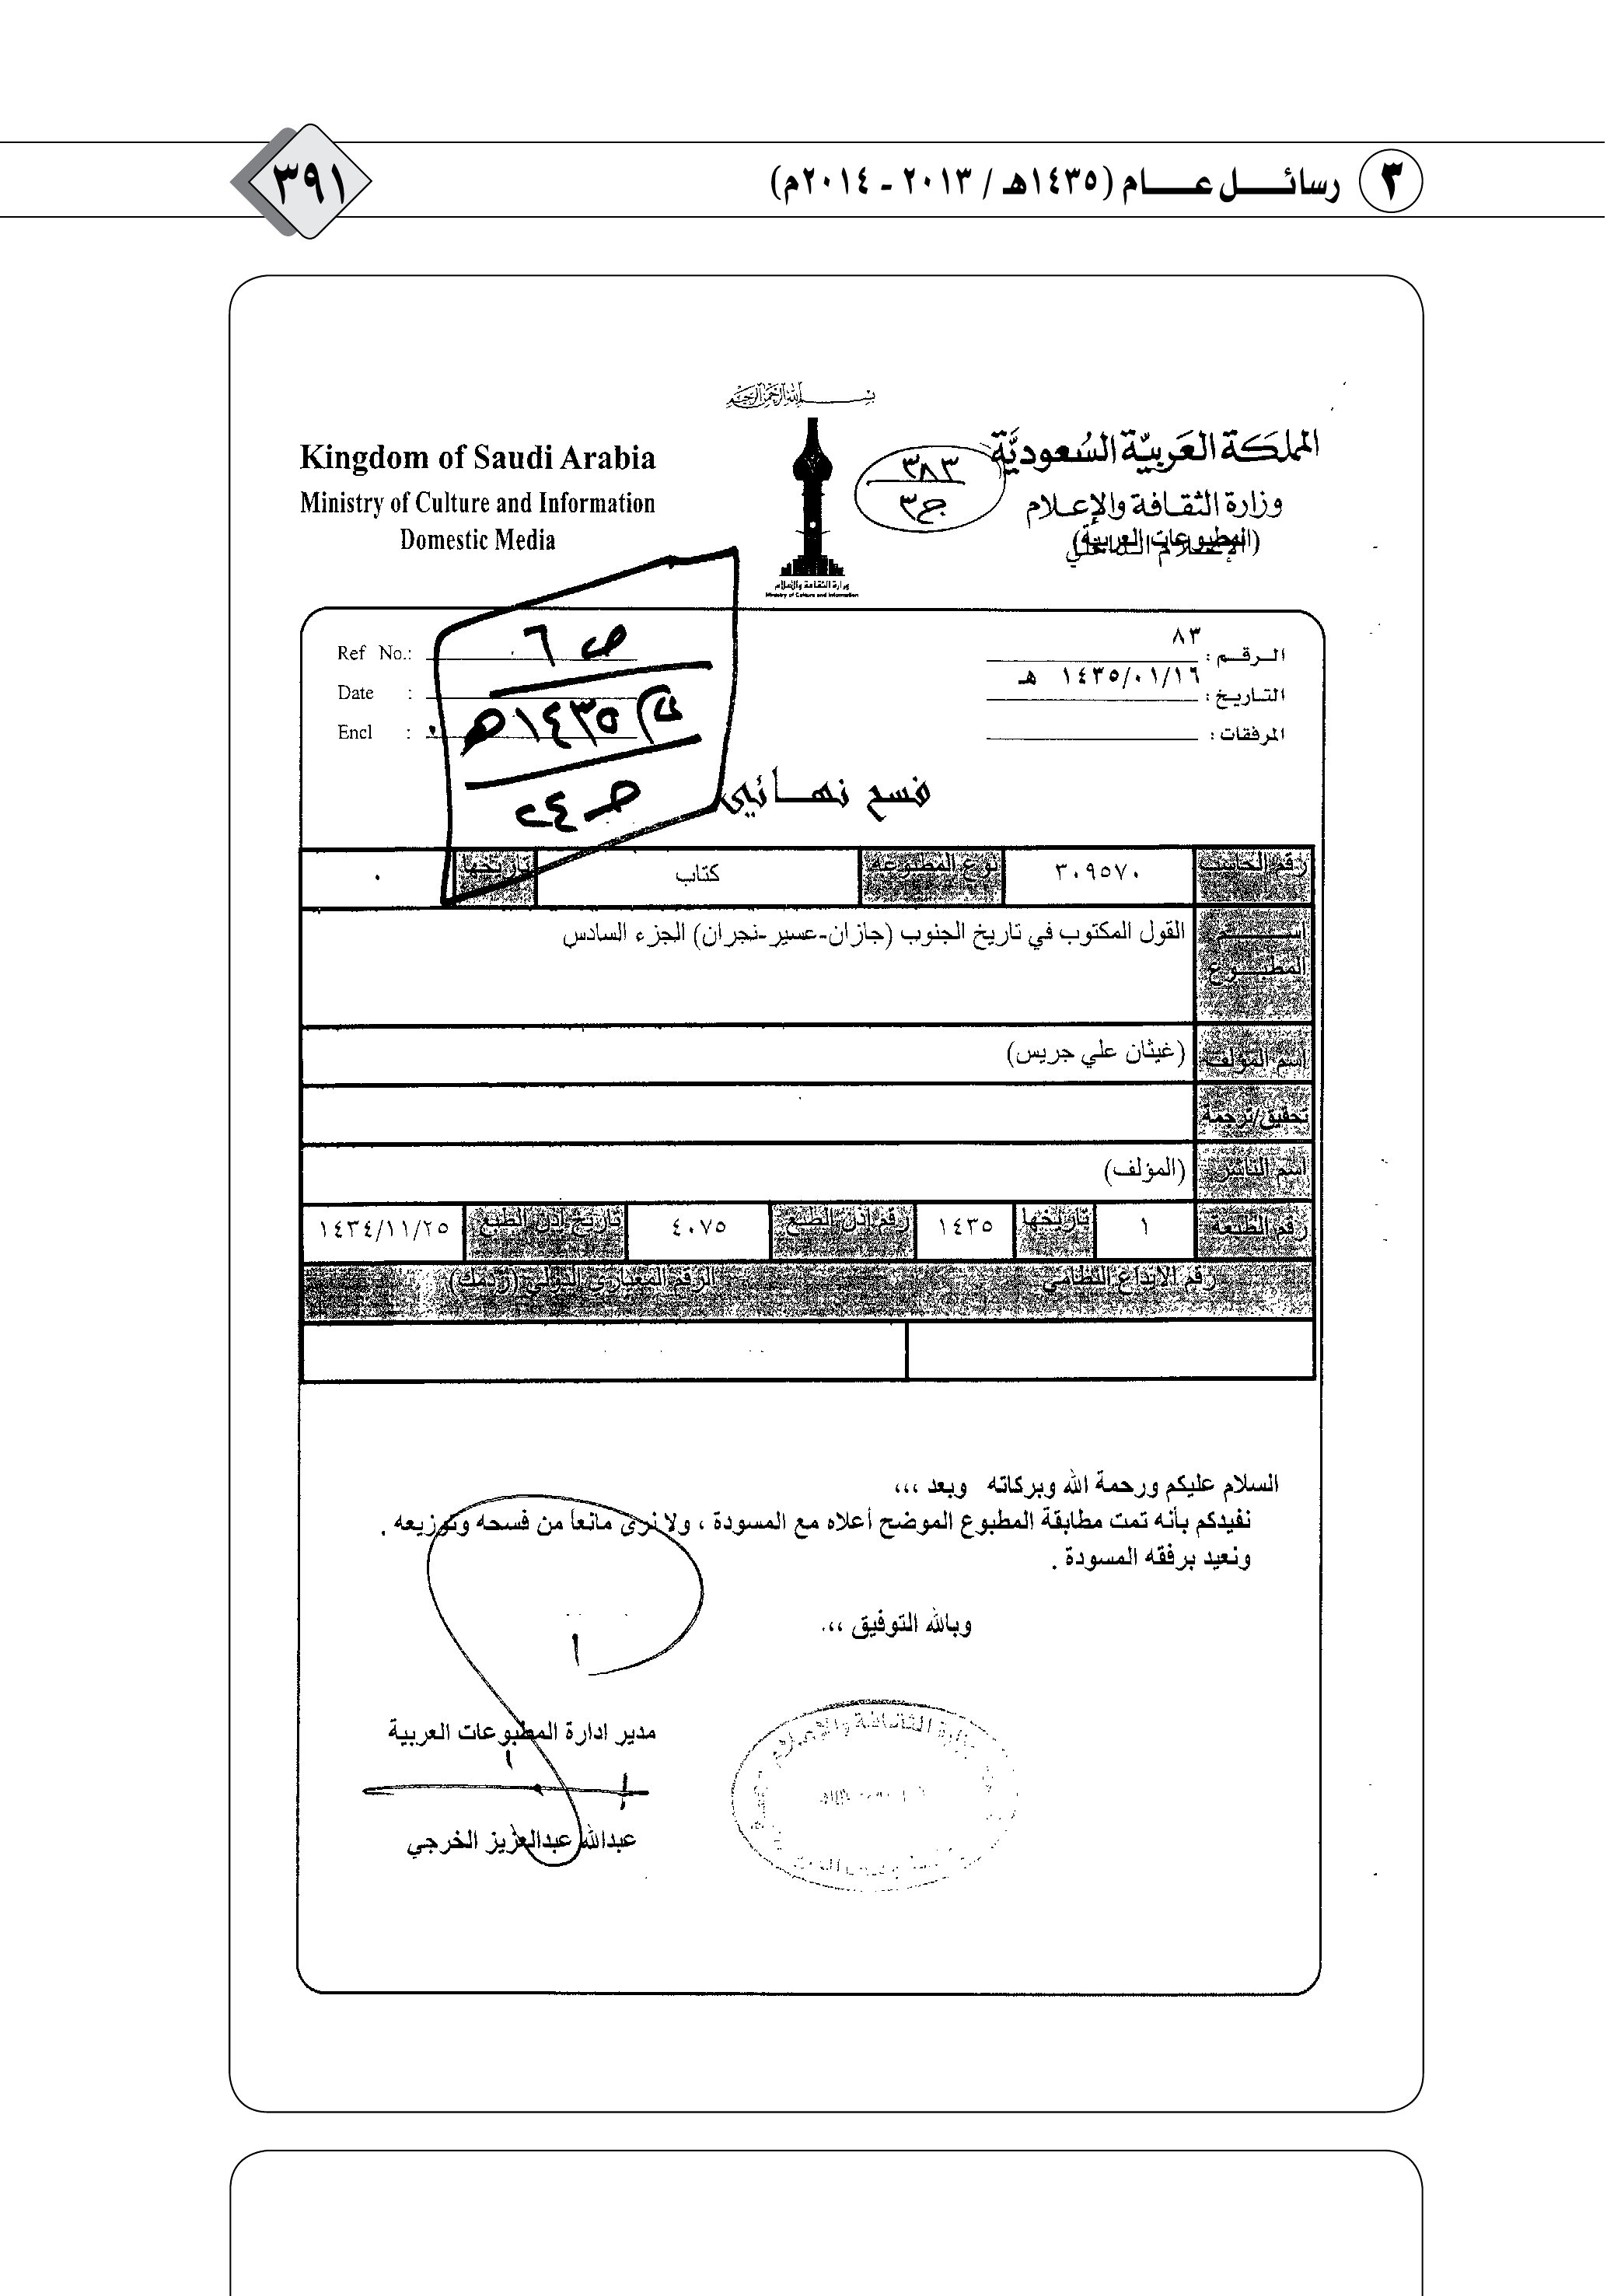 ٣ رسائل عام (١٤٣٥هـ / ٢٠١٣ - ٢٠١٤م) ٣٩١
بسم الله الرحمن الرحيم
المملكة العربية السعودية
وزارة الثقافة والإعلام
(المطبوعات العربية)
٣٨٣
ج٣
وزارة الثقافة والإعلام
Ministry of Culture and Information
Kingdom of Saudi Arabia
Ministry of Culture and Information
Domestic Media
الرقم : ٨٣
التاريخ : ١٤٣٥/٠١/١٦ هـ
المرفقات :
Ref No.:
Date :
Encl :
ص ٦
١٤٣٥هـ
فسح نهائي
رقم الحاسب ٣٠٩٥٧٠ نوع المطبوعة كتاب تاريخها ٠
اسم المطبوع القول المكتوب في تاريخ الجنوب (جازان-عسير-نجران) الجزء السادس
اسم المؤلف (غيثان علي جريس)
تحقيق/ترجمة
اسم الناشر (المؤلف)
رقم الطبعة ١ تاريخها ١٤٣٥ رقم إذن الطبع ٤٠٧٥ تاريخ إذن الطبع ١٤٣٤/١١/٢٥
رقم الايداع النظامي الرقم المعياري الدولي (ردمك)
السلام عليكم ورحمة الله وبركاته وبعد ،،،
نفيدكم بأنه تمت مطابقة المطبوع الموضح أعلاه مع المسودة ، ولا نرى مانعاً من فسحه وتوزيعه .
ونعيد برفقه المسودة .
وبالله التوفيق ،،،
مدير ادارة المطبوعات العربية
عبدالله عبدالعزيز الخرجي
وزارة الثقافة والإعلام